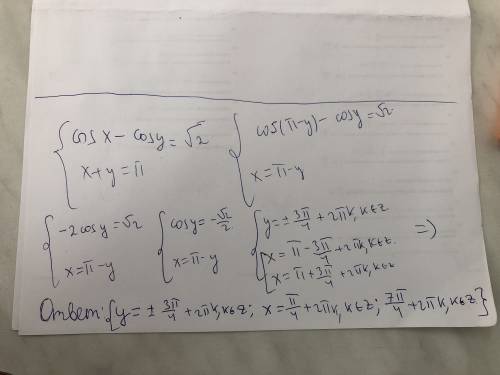 { cos x − cos y = √2
x + y = π
{ cos(π−y) − cos y = √2
x = π−y
{ −2cos y = √2
x = π−y
{ cos y = −√2/2
x = π−y
{ y = ± 3π/4 + 2πk, k∈z
[ x = π − 3π/4 + 2πk, k∈z.
x = π + 3π/4 + 2πk, k∈z
=>
Ответ: { y = ± 3π/4 + 2πk, k∈z; x = π/4 + 2πk, k∈z; 7π/4 + 2πk, k∈z }